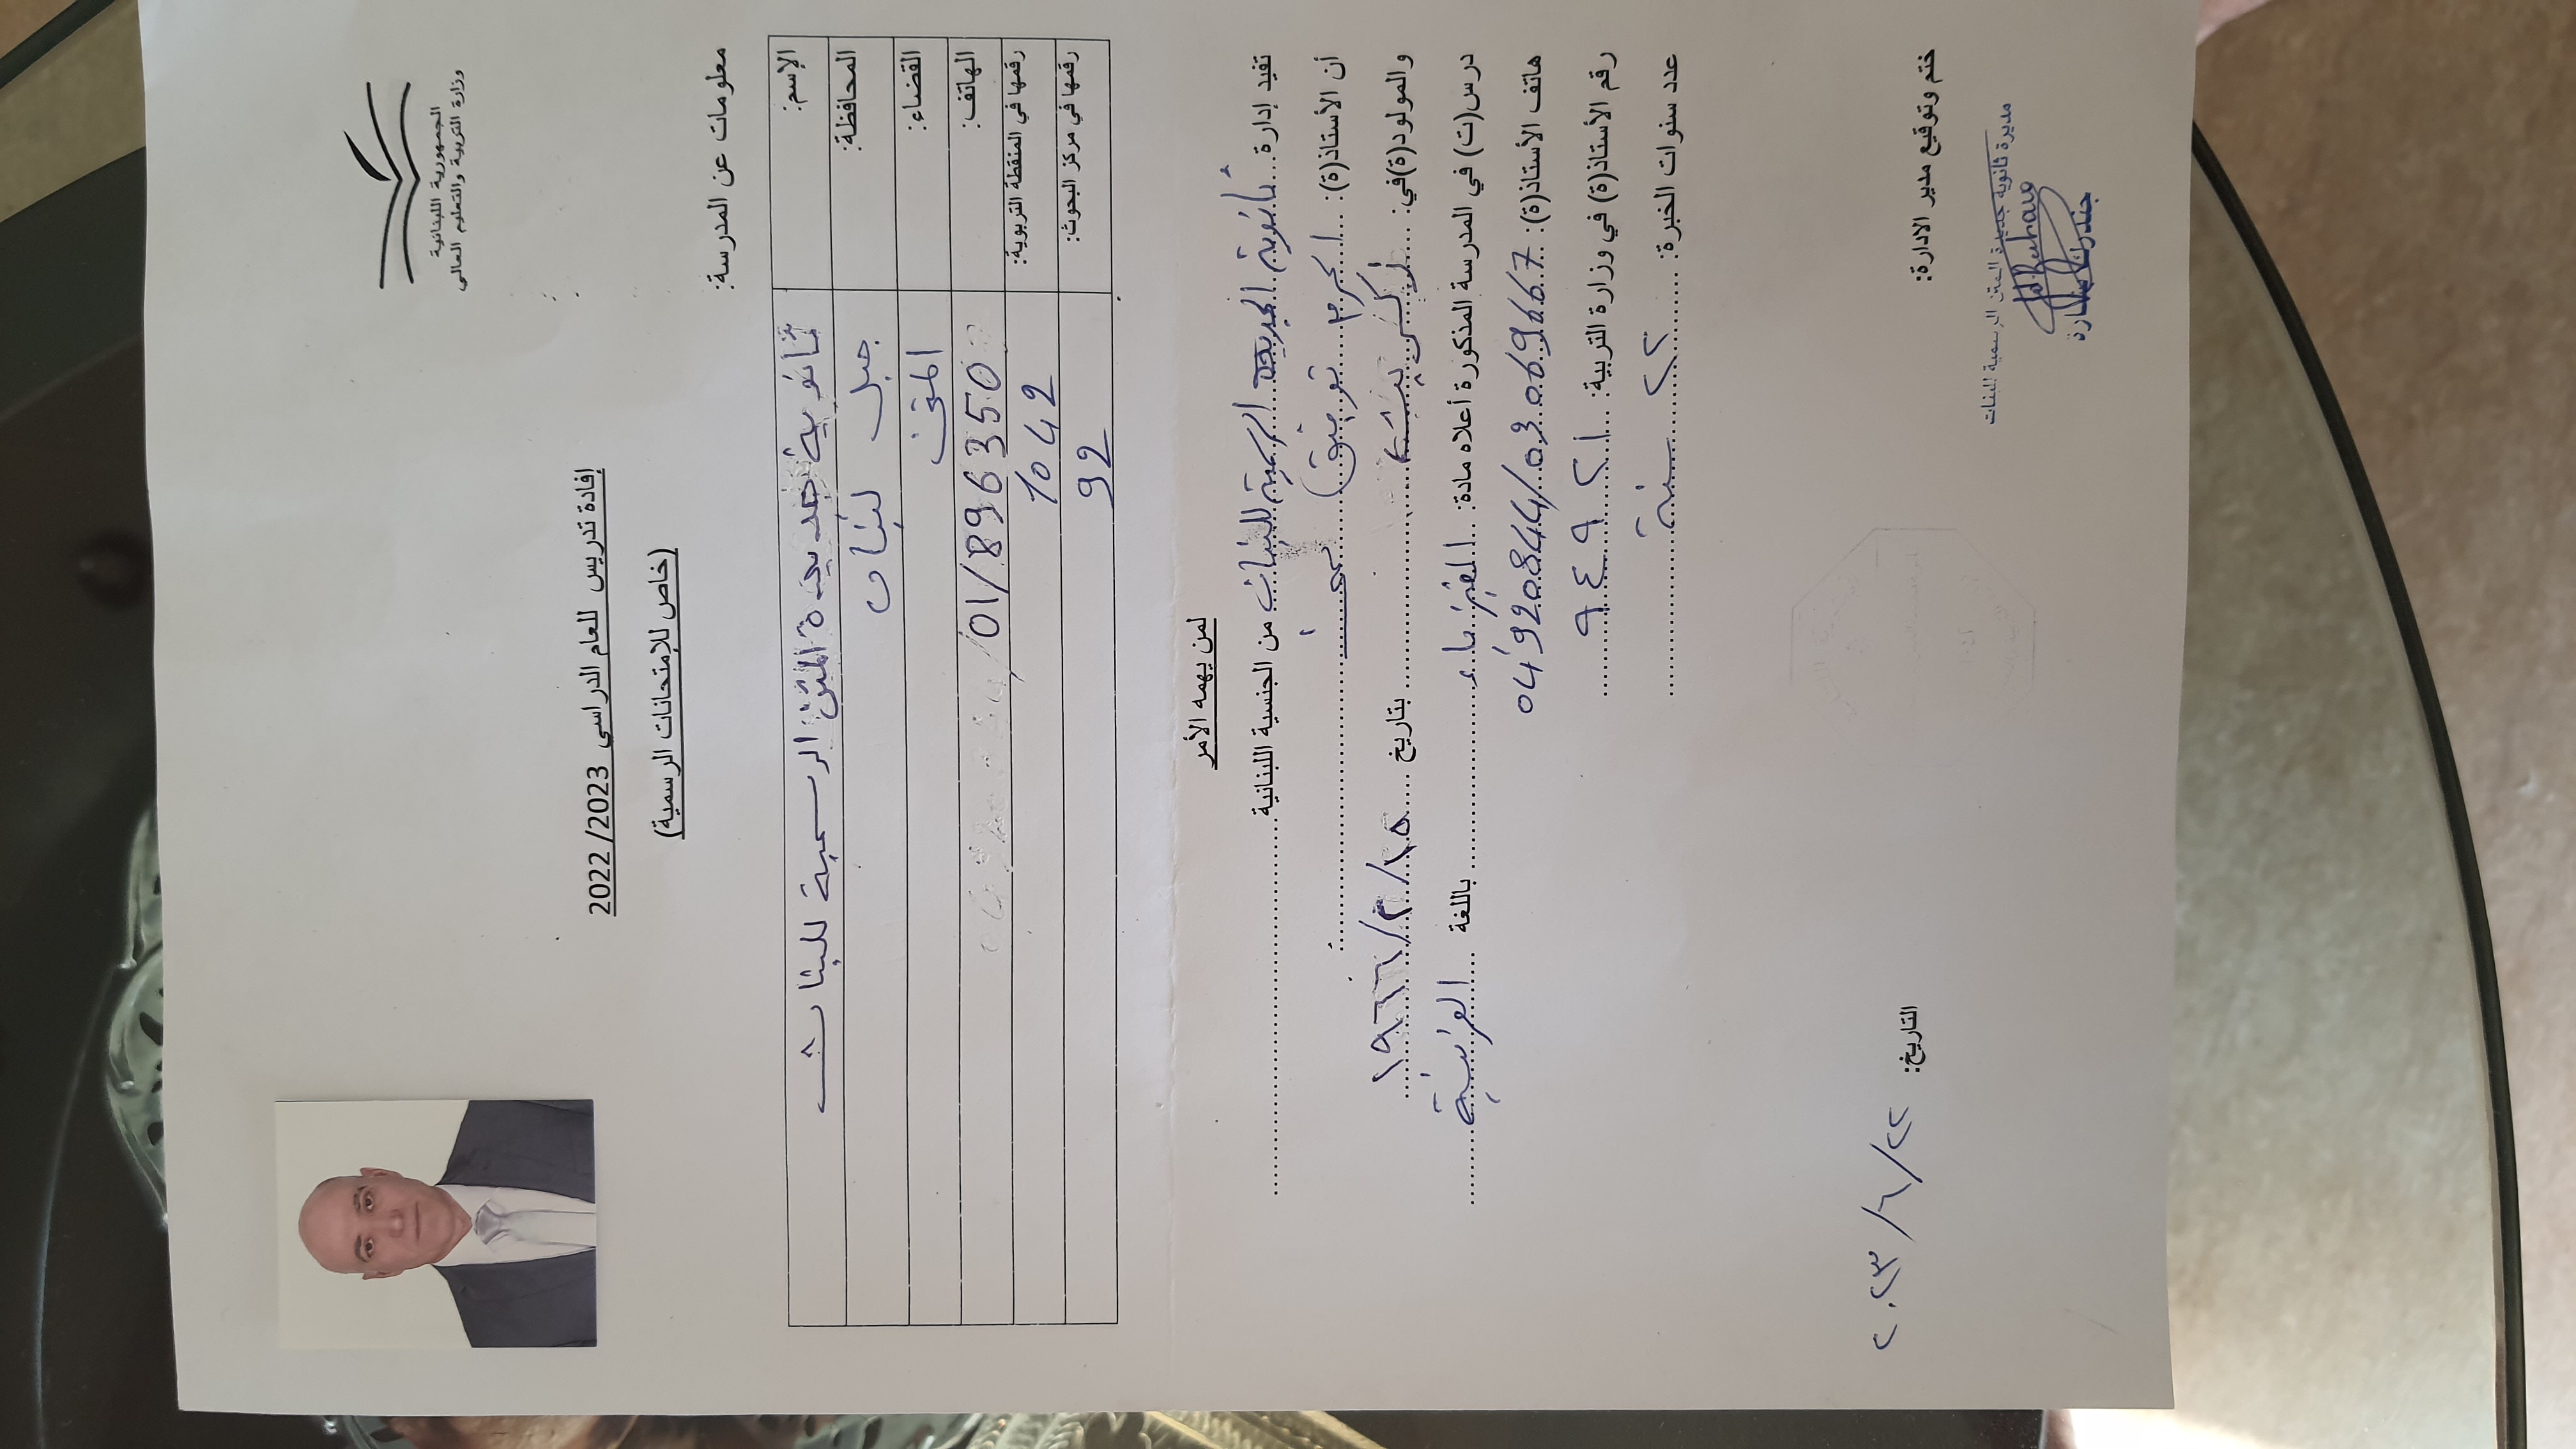 الجمهورية اللبنانية
وزارة التربية والتعليم العالي
إفادة تدريس للعام الدراسي 2022/2023
(خاص للإمتحانات الرسمية)
معلومات عن المدرسة:
الإسم: ثانوية جديدة المتن الرسمية للبنات
المحافظة: جبل لبنان
القضاء: المتن
الهاتف: 01/896350
رقمها في المنقطة التربوية: 1042
رقمها في مركز البحوث: 92
لمن يهمه الأمر
تفيد إدارة ثانوية الجديدة الرسمية للبنات من الجنسية اللبنانية
أن الأستاذ(ة): توفيق
والمولود(ة)في: بتاريخ ١٩٦٦/٣/١٥
درس(ت) في المدرسة المذكورة أعلاه مادة: الفيزياء باللغة الفرنسية
هاتف الأستاذ(ة): 04/920844/03069667
رقم الأستاذ(ة) في وزارة التربية: ٩٤٩٢١
عدد سنوات الخبرة: ٢٢ سنة
ختم وتوقيع مدير الادارة:
التاريخ: ٢٠٢٣/٦/٢٢
مديرة ثانوية جديدة المتن الرسمية للبنات